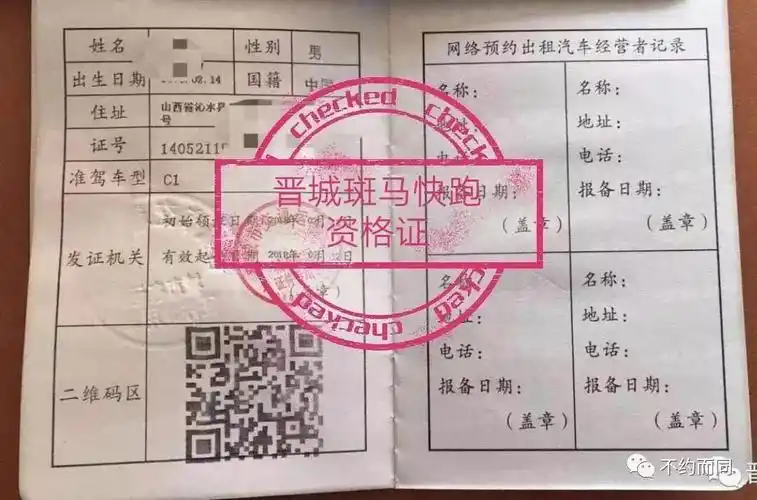 姓名
性别 男
出生日期 .02.14
国籍 中国
住址 山西省沁水县
号
证号 14052119
准驾车型 C1
发证机关
初始领证日期
有效起
二维码区
网络预约出租汽车经营者记录
名称:
地址:
电话:
报备日期:
(盖章)
名称:
地址:
电话:
报备日期:
(盖章)
名称:
地址:
电话:
报备日期:
(盖章)
名称:
地址:
电话:
报备日期:
(盖章)
checked checked
晋城斑马快跑
资格证
checked checked
不约而同
晋